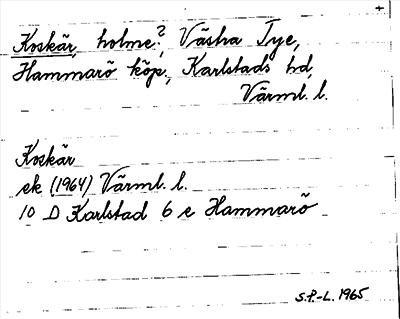 Koskär, holme?, Västra Tye,
Hammarö köp., Karlstads hd,
Värml. l.
Koskär
ek (1964) Värml. l.
10 D Karlstad 6 e Hammarö
S.P.-L. 1965